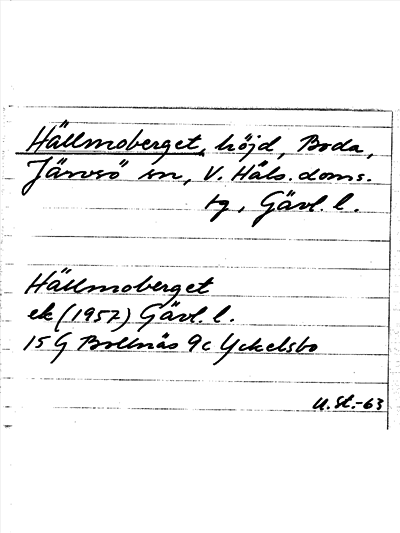 Hällmoberget, höjd, Boda,
Järvsö sn, V. Häls. doms.
tg, Gävl. l.
Hällmoberget
ek (1957) Gävl. l.
15 G Bollnäs 9c Yckelsbo
U.St.-63